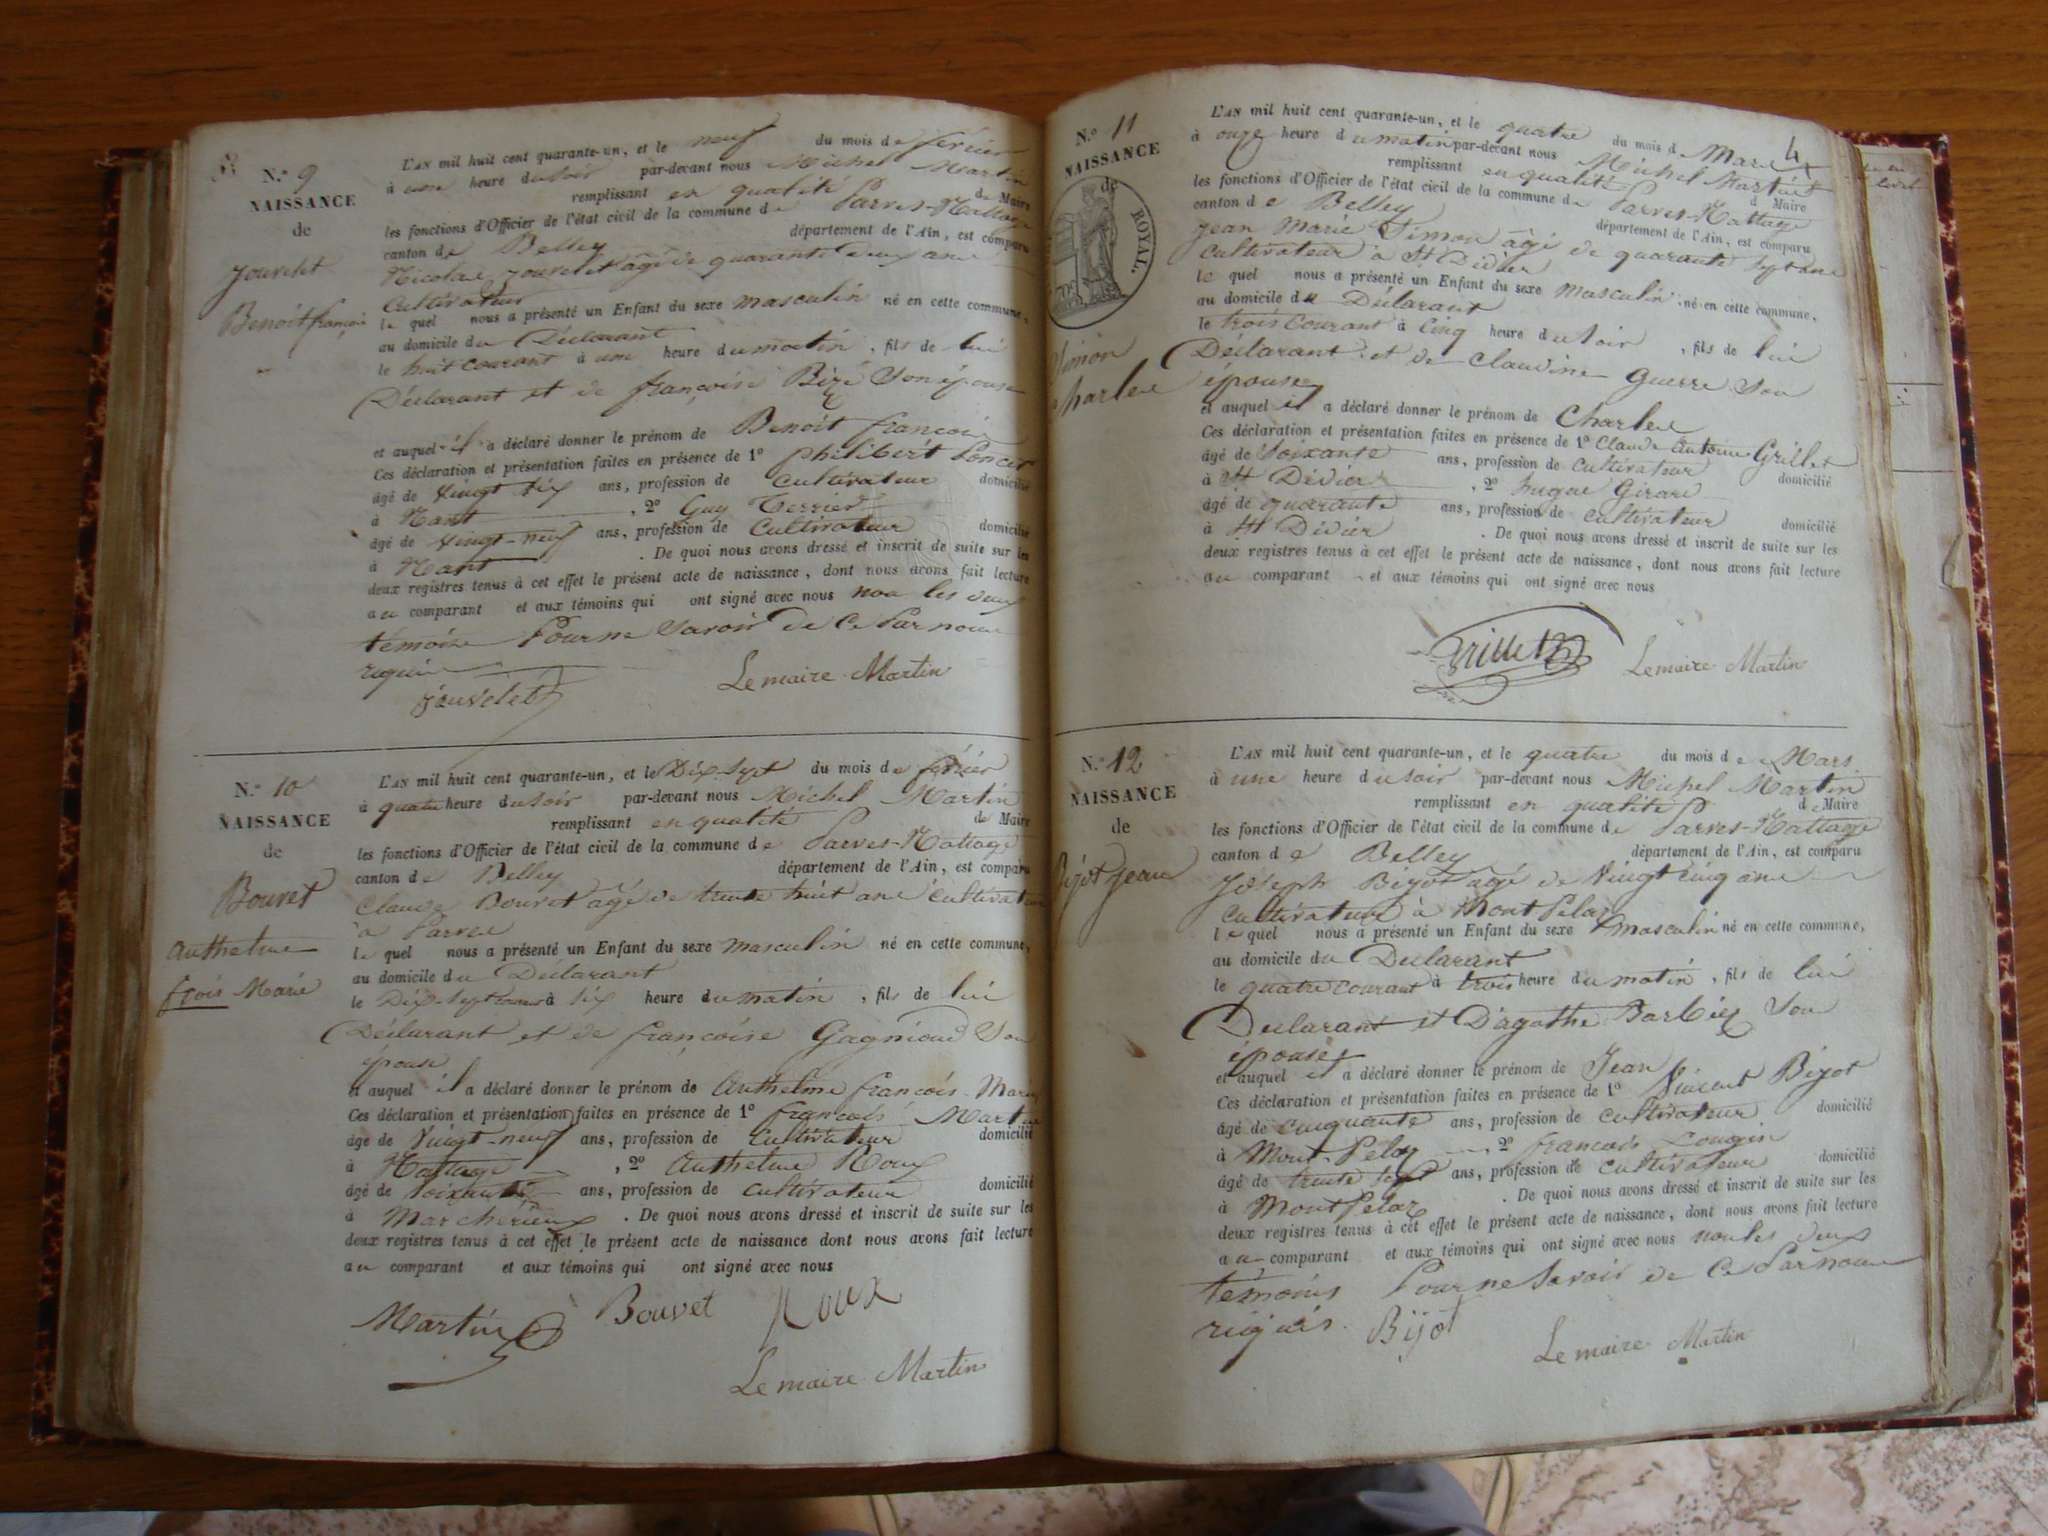 N.º 9
NAISSANCE
de
Jouvelet
Benoit françois
L'AN mil huit cent quarante-un, et le neuf du mois de février
à une heure du soir par-devant nous Michel Martin
remplissant en qualité de Maire
les fonctions d'Officier de l'état civil de la commune de Parves-Nattage
canton de Belley département de l'Ain, est comparu
Nicolas Jouvelet âgé de quarante deux ans
Cultivateur
le quel nous a présenté un Enfant du sexe masculin né en cette commune,
au domicile du Déclarant
le huit courant à une heure du matin, fils de lui
Déclarant et de françoise Bizé Son épouse
et auquel il a déclaré donner le prénom de Benoit françois
Ces déclaration et présentation faites en présence de 1º philibert Poncet
âgé de vingt six ans, profession de Cultivateur domicilié
à Nant, 2º Guy Terrier
âgé de vingt-neuf ans, profession de Cultivateur domicilié
à Nant. De quoi nous avons dressé et inscrit de suite sur les
deux registres tenus à cet effet le présent acte de naissance, dont nous avons fait lecture
au comparant et aux témoins qui ont signé avec nous non les deux
témoins Pour ne Savoir de Ce Par nous
requis
jouvelet
Le maire Martin
N.º 10
NAISSANCE
de
Bouvet
Anthelme
frois Marie
L'AN mil huit cent quarante-un, et le Dix-Sept du mois de février
à quatre heure du soir par-devant nous Michel Martin
remplissant en qualité de Maire
les fonctions d'Officier de l'état civil de la commune de Parves-Nattage
canton de Belley département de l'Ain, est comparu
Claude Bouvet âgé de trente huit ans cultivateur
à Parves
le quel nous a présenté un Enfant du sexe masculin né en cette commune,
au domicile du Déclarant
le Dix-Sept courant à six heure du matin, fils de lui
Déclarant et de françoise Gagnioud Son
épouse
et auquel il a déclaré donner le prénom de Anthelme françois Marie
Ces déclaration et présentation faites en présence de 1º françois Martin
âgé de vingt-neuf ans, profession de Cultivateur domicilié
à Nattage, 2º Anthelme Roux
âgé de soixante ans, profession de cultivateur domicilié
à Marcherieux. De quoi nous avons dressé et inscrit de suite sur les
deux registres tenus à cet effet le présent acte de naissance dont nous avons fait lecture
au comparant et aux témoins qui ont signé avec nous
Martin Bouvet Roux
Le maire Martin
4
N.º 11
NAISSANCE
de
ROYAL.
Simon
Charles
L'AN mil huit cent quarante-un, et le quatre du mois de Mars
à onze heure du matin par-devant nous Michel Martin
remplissant en qualité d Maire
les fonctions d'Officier de l'état civil de la commune de Parves-Nattage
canton de Belley département de l'Ain, est comparu
Jean Marie Simon âgé de quarante Sept ans
Cultivateur à St Didier
le quel nous a présenté un Enfant du sexe masculin né en cette commune,
au domicile du Déclarant
le trois courant à Cinq heure du soir, fils de lui
Déclarant et de Claudine Guerre Son
épouse
et auquel il a déclaré donner le prénom de Charles
Ces déclaration et présentation faites en présence de 1º Claude Antoine Grillet
âgé de Soixante ans, profession de cultivateur domicilié
à St Didier, 2º hugue Girard
âgé de quarante ans, profession de Cultivateur domicilié
à St Didier. De quoi nous avons dressé et inscrit de suite sur les
deux registres tenus à cet effet le présent acte de naissance, dont nous avons fait lecture
au comparant et aux témoins qui ont signé avec nous
Grillet
Le maire Martin
N.º 12
NAISSANCE
de
Bijot Jean
L'AN mil huit cent quarante-un, et le quatre du mois de Mars
à une heure du soir par-devant nous Michel Martin
remplissant en qualité d Maire
les fonctions d'Officier de l'état civil de la commune de Parves-Nattage
canton de Belley département de l'Ain, est comparu
Joseph Bijot âgé de Vingt Cinq ans
Cultivateur à Mont Pelaz
le quel nous a présenté un Enfant du sexe masculin né en cette commune,
au domicile du Déclarant
le quatre courant à trois heure du matin, fils de lui
Déclarant et D'agathe Barbier Son
épouse
et auquel il a déclaré donner le prénom de Jean
Ces déclaration et présentation faites en présence de 1º Vincent Bijot
âgé de cinquante ans, profession de Cultivateur domicilié
à Mont-Pelaz, 2º françois Lougin
âgé de trente Sept ans, profession de cultivateur domicilié
à Mont Pelaz. De quoi nous avons dressé et inscrit de suite sur les
deux registres tenus à cet effet le présent acte de naissance, dont nous avons fait lecture
au comparant et aux témoins qui ont signé avec nous non les deux
témoins Pour ne Savoir de Ce Par nous
requis. Bijot
Le maire Martin